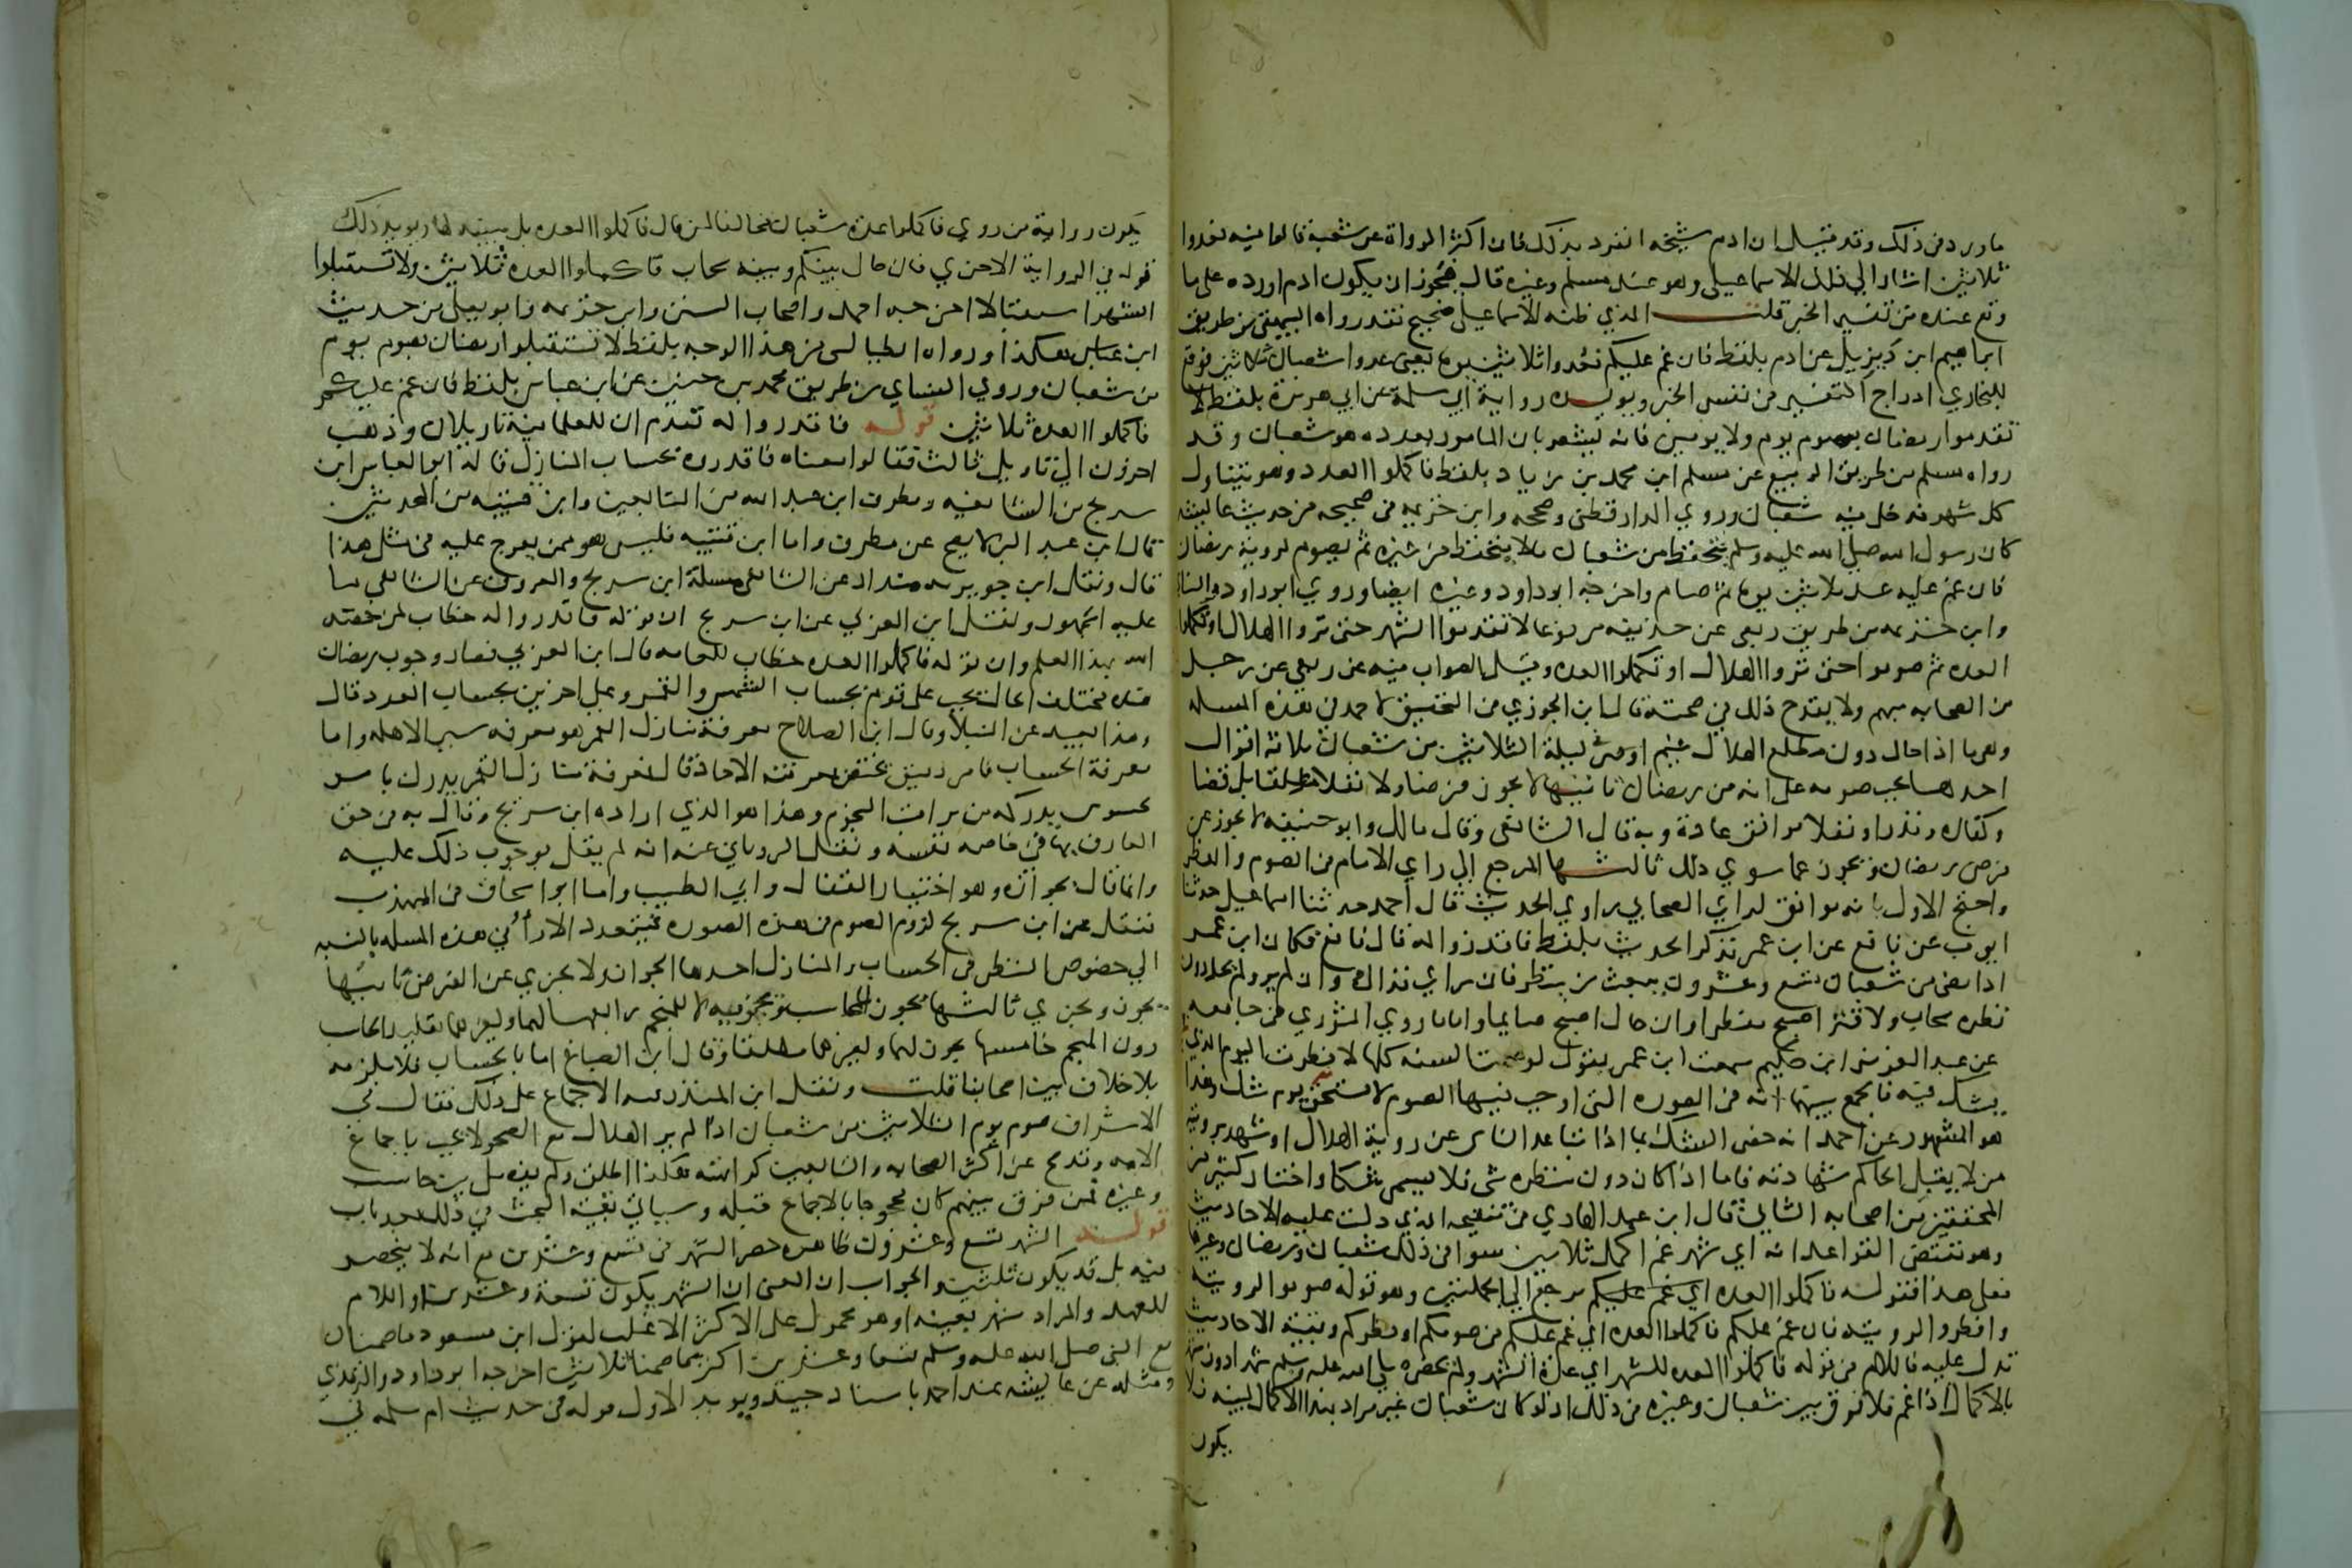 ما ورد من ذلك وقد قيل ان ادم شيخه انفرد بذلك فان اكثر الرواة عن شعبة قالوا فيه فعدوا
ثلاثين اشار الي ذلك الاسماعيلي وهو عند مسلم وغيره قال فيجوز ان يكون ادم اورده علي ما
وقع عنده من تفسير الخبر قلت الذي ظنه الاسماعيلي صحيح فقد رواه البيهقي من طريق
ابراهيم ابن ديزيل عن ادم بلفظ فان غم عليكم فعدوا ثلاثين يوما يعني عدوا شعبان ثلاثين فوقع
للبخاري ادراج التفسير في نفس الخبر ويويده رواية ابي سلمة عن ابي هريرة بلفظ لا
تقدموا رمضان بصوم يوم ولا يومين فانه يشعر بان المامور بعدده هو شعبان وقد
رواه مسلم من طريق الربيع عن مسلم ابن محمد بن زياد بلفظ فاكملوا العدد وهو يتناول
كل شهر فدخل فيه شعبان وروي الدارقطني وصححه وابن خزيمه في صحيحه من حديث عايشه
كان رسول الله صلي الله عليه وسلم يتحفظ من شعبان ما لا يتحفظ من غيره ثم يصوم لروية رمضان
فان غم عليه عد ثلاثين يوما ثم صام واخرجه ابو داود وغيره ايضا وروي ابو داود والنسا
وابن خزيمه من طريق ربعي عن حذيفه مرفوعا لا تقدموا الشهر حتي تروا الهلال او تكملوا
العده ثم صوموا حتي تروا الهلال او تكملوا العده وقيل الصواب فيه عن ربعي عن رجل
من الصحابه مبهم ولا يقدح ذلك في صحته قال ابن الجوزي في التحقيق لاحمد في هذه المسله
وهي ما اذا حال دون مطلع الهلال غيم او قتر ليلة الثلاثين من شعبان ثلاثة اقوال
احدها يجب صومه علي انه من رمضان ثانيها لا يجوز فرضا ولا نفلا مطلقا بل قضا
وكفاره ونذرا ونفلا يوافق عادة وبه قال الشافعي وقال مالك وابو حنيفه لا يجوز عن
فرض رمضان ويجوز عما سوي ذلك ثالثها المرجع الي راي الامام في الصوم والفطر
واحتج الاول بانه موافق لراي الصحابي راوي الحديث قال احمد حدثنا اسماعيل حدثنا
ايوب عن نافع عن ابن عمر فذكر الحديث بلفظ فاقدروا له قال نافع فكان ابن عمر
اذا مضي من شعبان تسع وعشرون يبعث من ينظر فان راي فذاك وان لم ير ولم يحل دون
نظره سحاب ولا قتر اصبح مفطرا وان حال اصبح صايما واما ما روي الثوري في جامعه
عن عبد العزيز ابن حكيم سمعت ابن عمر يقول لو صمت السنه كلها لافطرت اليوم الذي
يشك فيه فالجمع بينهما انه في الصورة التي اوجب فيها الصوم لا يسمي يوم شك وهذا
هو المشهور عن احمد انه خص الشك بما اذا تقاعد الناس عن روية الهلال او شهد برويته
من لا يقبل الحاكم شهادته فاما اذا كان دون منظره شي فلا يسمي شكا واختار كثير من
المحققين من اصحابه الثاني قال ابن عبد الهادي في تنقيحه الذي دلت عليه الاحاديث
وهو مقتضي القواعد انه اي شهر غم اكمل ثلاثين سوا في ذلك شعبان ورمضان وغيرهما
فعلي هذا فقوله فاكملوا العده اي غم عليكم يرجع الي الجملتين وهو قوله صوموا لرويته
وافطروا لرويته فان غم عليكم فاكملوا العده اي غم عليكم في صومكم او فطركم وبقية الاحاديث
تدل عليه فاللام في قوله فاكملوا العده للشهر اي عدة الشهر ولم يخص صلي الله عليه وسلم شهرا دون شهر
بالاكمال اذا غم فلا فرق بين شعبان وغيره في ذلك اذ لو كان شعبان غير مراد بهذا الاكمال لبينه فلا
يكون
يكون رواية من روي فاكملوا عدة شعبان مخالفا لمن قال فاكملوا العده بل مبينه لها ويويد ذلك
قوله في الرواية الاخري فان حال بينكم وبينه سحاب فاكملوا العده ثلاثين ولا تستقبلوا
الشهر استقبالا اخرجه احمد واصحاب السنن وابن خزيمه وابو يعلي من حديث
ابن عباس هكذا ورواه الطيالسي من هذا الوجه بلفظ لا تستقبلوا رمضان بصوم يوم
من شعبان وروي النساي من طريق محمد بن حنين عن ابن عباس بلفظ فان غم عليكم
فاكملوا العدة ثلاثين قوله فاقدروا له تقدم ان للعلما فيه تاويلان وذهب
اخرون الي تاويل ثالث فقالوا معناه فاقدروه بحساب المنازل قاله ابو العباس ابن
سريج من الشافعيه ومطرف ابن عبد الله من التابعين وابن قتيبه من المحدثين
قال ابن عبد البر لا يصح عن مطرف واما ابن قتيبه فليس هو ممن يعرج عليه في مثل هذا
قال ونقل ابن خويز منداد عن الشافعي مسلة ابن سريج والمعروف عن الشافعي ما
عليه الجمهور ونقل ابن العربي عن ابن سريج ان قوله فاقدروا له خطاب لمن خصه
الله بهذا العلم وان قوله فاكملوا العده خطاب للعامه قال ابن العربي فصار وجوب رمضان
عنده مختلف الحال يجب علي قوم بحساب الشمس والقمر وعلي اخرين بحساب العدد قال
وهذا بعيد عن النبلا وقال ابن الصلاح معرفة منازل القمر هو معرفه سير الاهله واما
معرفة الحساب فامر دقيق يختص بمعرفته الاحاد قال فمعرفة منازل القمر يدرك بامر
محسوس يدركه من يراقب النجوم وهذا هو الذي اراده ابن سريج وقال به في حق
العارف بها في خاصه نفسه ونقل الروياني عنه انه لم يقل بوجوب ذلك عليه
وانما قال بجوازه وهو اختيار القفال وابي الطيب واما ابو اسحاق في المهذب
فنقل عن ابن سريج لزوم الصوم في هذه الصوره فيتعدد الارا في هذه المسله بالنسبه
الي خصوص النظر في الحساب والمنازل احدها الجواز ولا يجزي عن الفرض ثانيها
يجوز ويجزي ثالثها يجوز للحاسب ويجزيه لا للمنجم رابعها لهما ولغيرهما تقليد الحاسب
دون المنجم خامسها يجوز لهما ولغيرهما مطلقا وقال ابن الصباغ اما بالحساب فلا يلزمه
بلا خلاف بين اصحابنا قلت ونقل ابن المنذر قبله الاجماع علي ذلك فقال في
الاشراف صوم يوم الثلاثين من شعبان اذا لم ير الهلال مع الصحو لا يجب باجماع
الامه وقد صح عن اكثر الصحابه والتابعين كراهته هكذا اطلق ولم يفصل بين حاسب
وغيره فمن فرق بينهم كان محجوجا بالاجماع قبله وسياتي بقية البحث في ذلك بعد باب
قوله الشهر تسع وعشرون ظاهره حصر الشهر في تسع وعشرين مع انه لا ينحصر
فيه بل قد يكون ثلاثين والجواب ان المعني ان الشهر يكون تسعة وعشرين او اللام
للعهد والمراد شهر بعينه او هو محمول علي الاكثر الاغلب لقول ابن مسعود ما صمنا
مع النبي صلي الله عليه وسلم تسعا وعشرين اكثر مما صمنا ثلاثين اخرجه ابو داود والترمذي
ومثله عن عايشه عند احمد باسناد جيد ويويد الاول قوله في حديث ام سلمه في